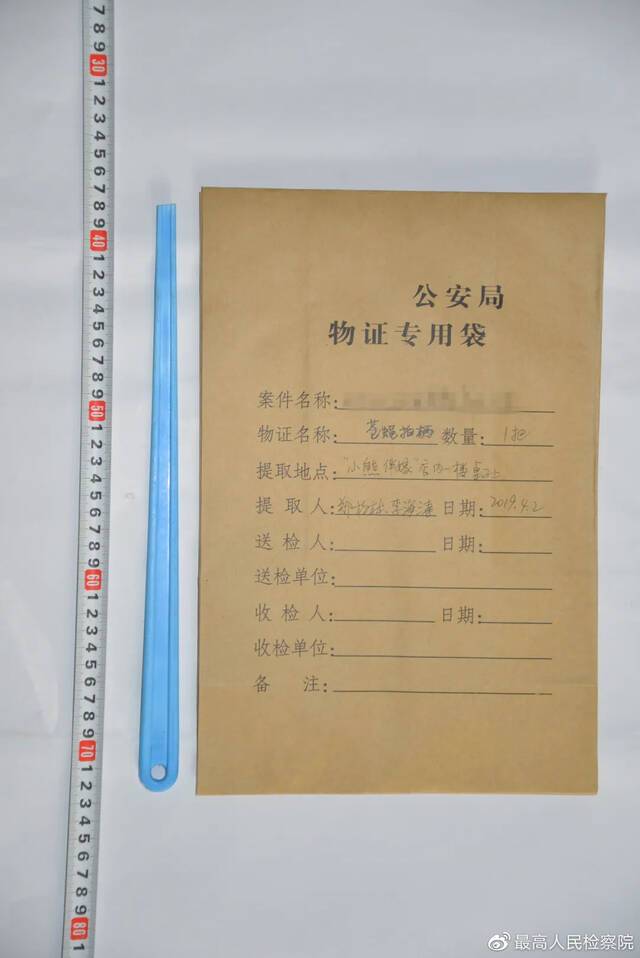 7
8
9
30
1
2
3
4
5
6
7
8
9
40
1
2
3
4
5
6
7
8
9
50
1
2
3
4
5
6
7
8
9
60
1
2
3
4
5
6
7
8
9
70
1
2
3
4
5
6
7
8
9
80
1
公安局
物证专用袋
案件名称:
物证名称: 苍蝇拍柄 数量: 1把
提取地点: "小熊 店内一楼桌上
提取人: 李海涛 日期: 2019.4.2
送检人: 日期:
送检单位:
收检人: 日期:
收检单位:
备注:
@最高人民检察院